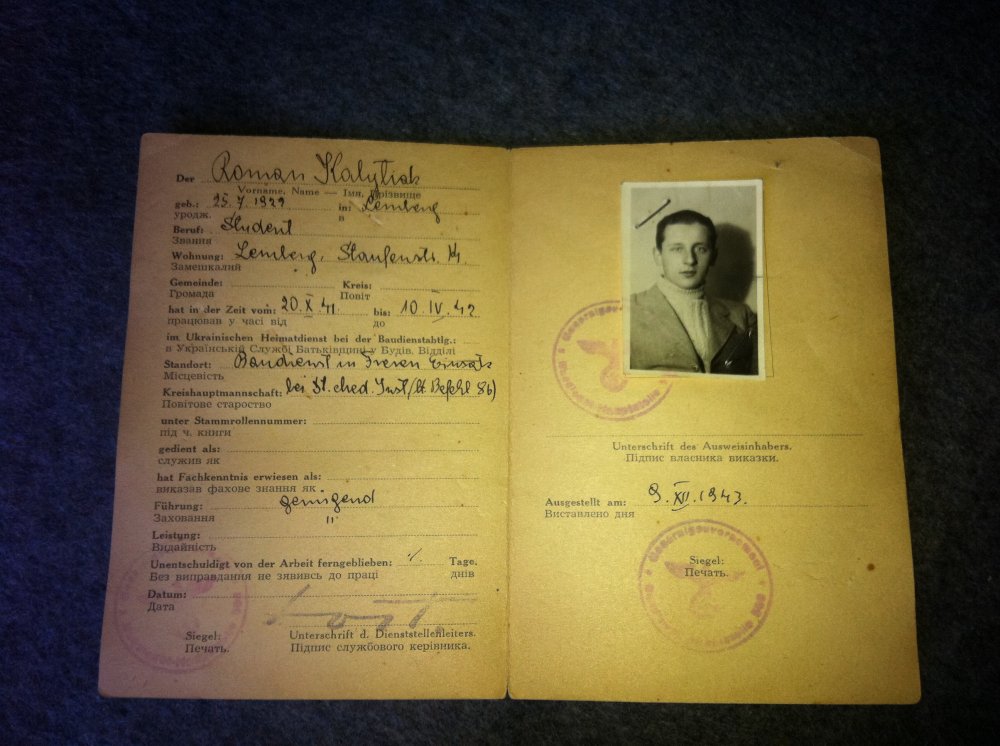 Der Roman Kalytiak
Vorname, Name — Імя, Прізвище
geb.: 25. 7. 1922 in: Lemberg
уродж. в
Beruf: Student
Звання
Wohnung: Lemberg, Staufenstr.
Замешкалий
Gemeinde: Kreis:
Громада Повіт
hat in der Zeit vom: 20. X. 41. bis: 10. IV. 42
працював у часі від до
im Ukrainischen Heimatdienst bei der Baudienstabtlg.:
в Українській Службі Батьківщині у Будів. Відділі
Standort: Baudienst im Freien Einsatz
Місцевість
Kreishauptmannschaft: bei St. ched. Inst/lt. Befehl 86)
Повітове староство
unter Stammrollennummer:
під ч. книги
gedient als:
служив як
hat Fachkenntnis erwiesen als:
виказав фахове знання як
Führung: genügend
Заховання "
Leistung:
Видайність
Unentschuldigt von der Arbeit ferngeblieben: Tage.
Без виправдання не зявивсь до праці днів
Datum:
Дата
Siegel: Unterschrift d. Dienststellenleiters.
Печать. Підпис службового керівника.
Unterschrift des Ausweisinhabers.
Підпис власника виказки.
Ausgestellt am: 9. XII. 1943.
Виставлено дня
Generalgouvernement
Siegel:
Печать.